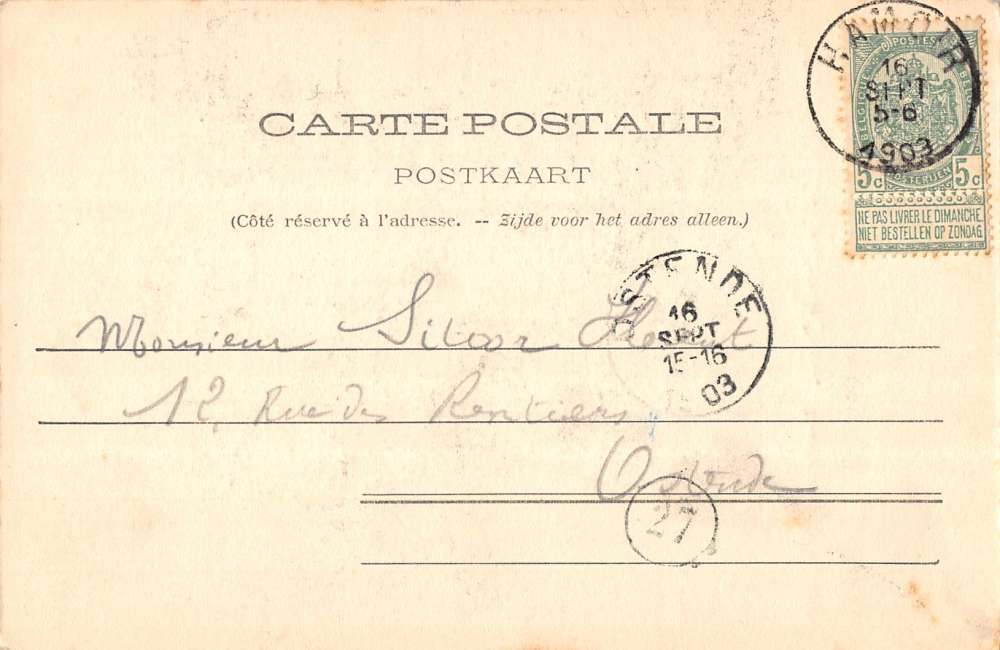 HAMOIR
16
SEPT
5-6
1903
POSTES
BELGIQUE
POSTERIJEN
5c 5c
NE PAS LIVRER LE DIMANCHE
NIET BESTELLEN OP ZONDAG
CARTE POSTALE
POSTKAART
(Côté réservé à l'adresse. -- Zijde voor het adres alleen.)
OSTENDE
16
SEPT
15-16
03
Monsieur
12, Rue des Rentiers
Ostende
27